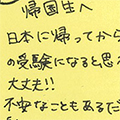 帰国生へ
日本に帰ってから
の受験になると思
大丈夫!!
不安なこともあるだ